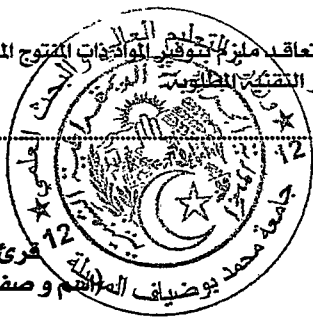 تعاقد ملزم لتوفير المواد ذات المنتوج الم
التقنية المطلوبة
وزارة التعليم العالي والبحث العلمي
12
جامعة محمد بوضياف المسيلة
12
قرئ
اسم و صف